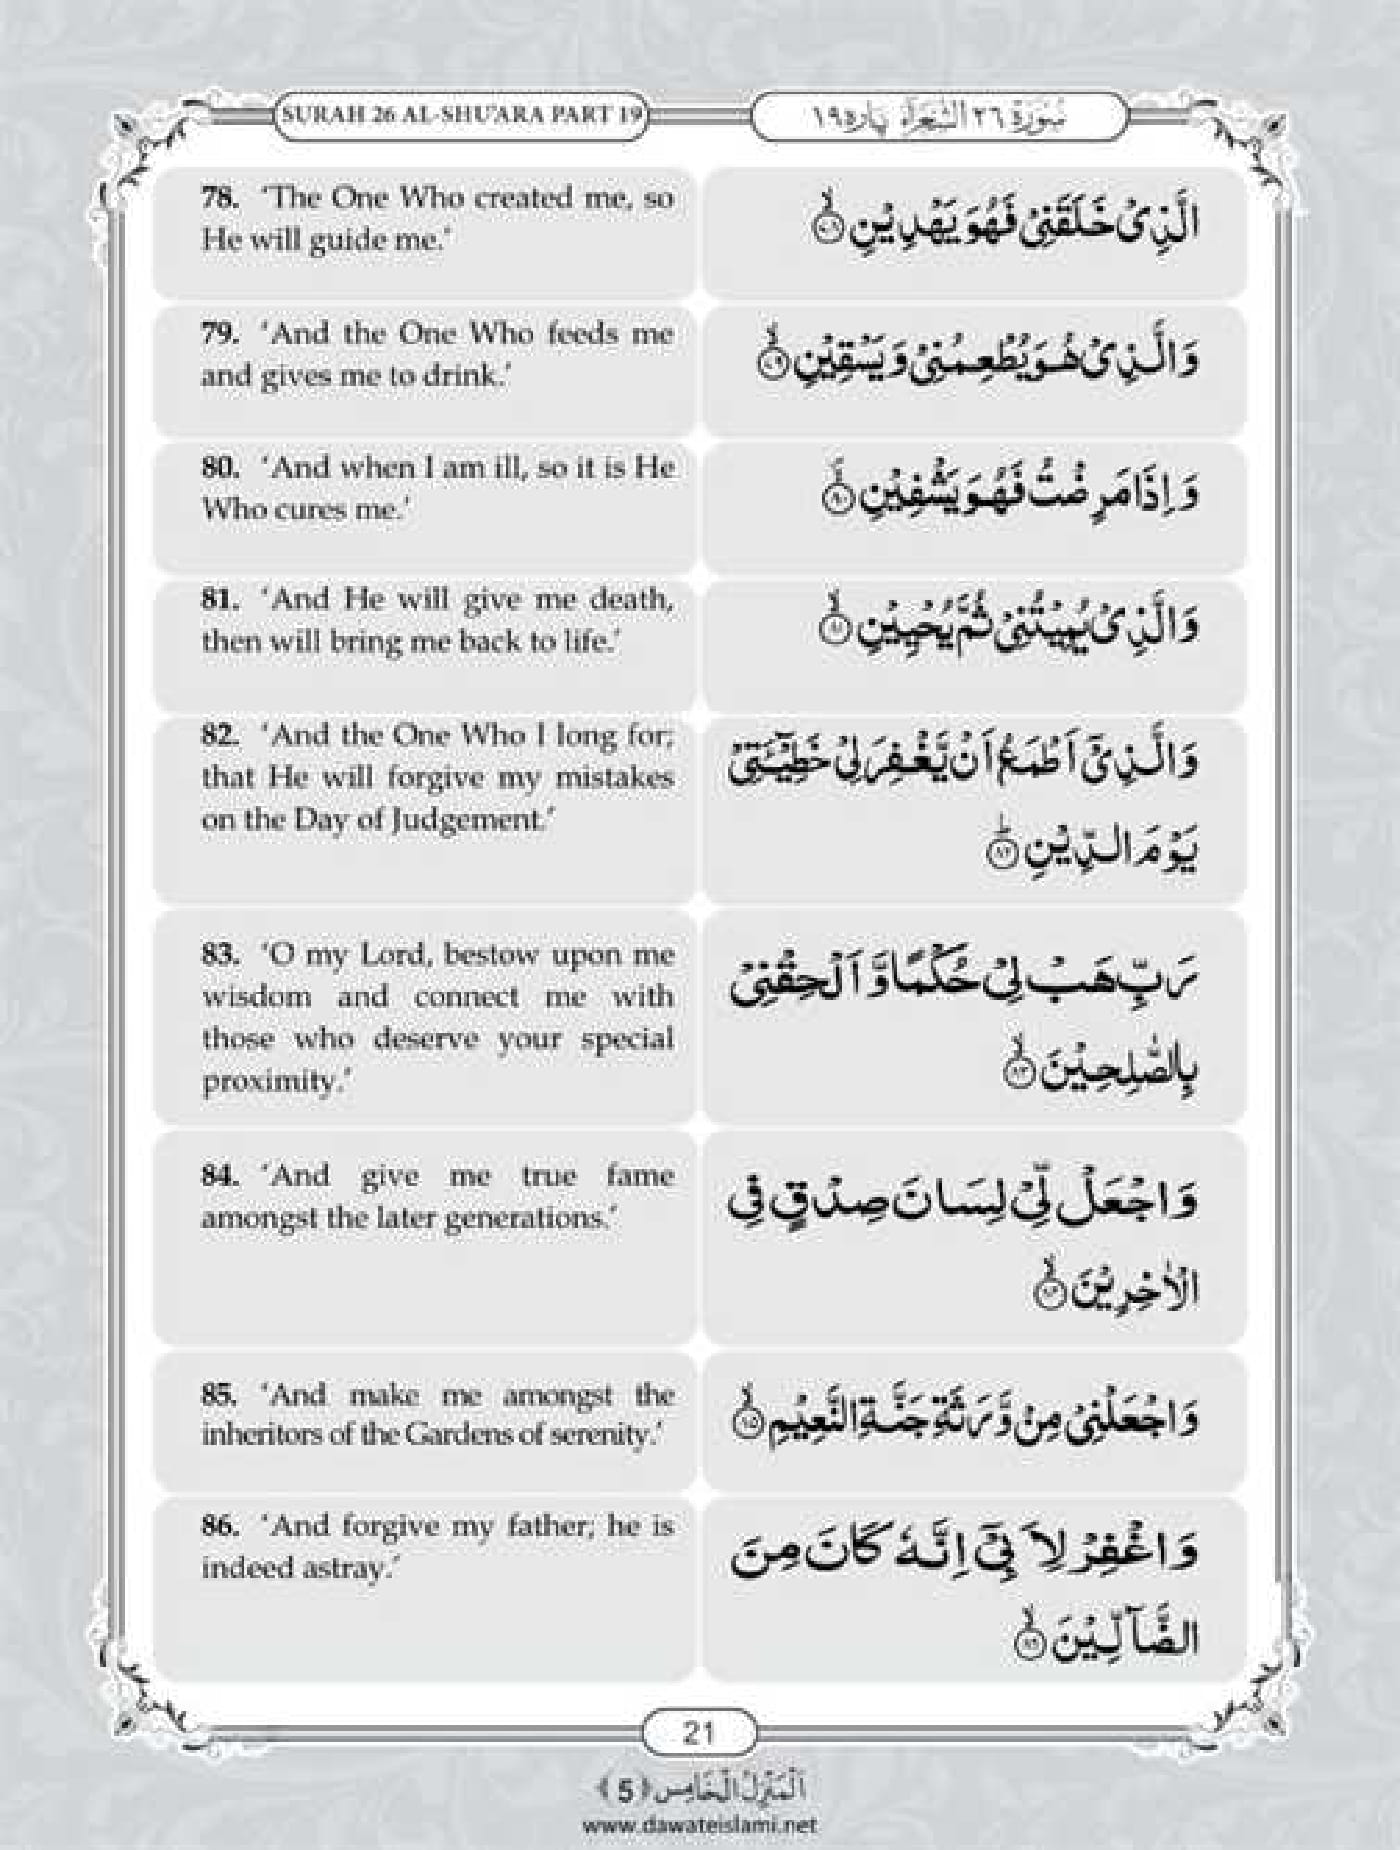 SURAH 26 AL-SHU'ARA PART 19
سُوْرَة ٢٦ الشُّعَرَآء پاره ١٩
78. 'The One Who created me, so
He will guide me.'
الَّذِیْ خَلَقَنِیْ فَهُوَ یَهْدِیْنِ ۙ﴿۷۸﴾
79. 'And the One Who feeds me
and gives me to drink.'
وَالَّذِیْ هُوَ یُطْعِمُنِیْ وَ یَسْقِیْنِ ۙ﴿۷۹﴾
80. 'And when I am ill, so it is He
Who cures me.'
وَ اِذَا مَرِضْتُ فَهُوَ یَشْفِیْنِ ۪ۙ﴿۸۰﴾
81. 'And He will give me death,
then will bring me back to life.'
وَالَّذِیْ یُمِیْتُنِیْ ثُمَّ یُحْیِیْنِ ۙ﴿۸۱﴾
82. 'And the One Who I long for;
that He will forgive my mistakes
on the Day of Judgement.'
وَالَّذِیْۤ اَطْمَعُ اَنْ یَّغْفِرَ لِیْ خَطِیْٓـَٔتِیْ
یَوْمَ الدِّیْنِ ؕ﴿۸۲﴾
83. 'O my Lord, bestow upon me
wisdom and connect me with
those who deserve your special
proximity.'
رَبِّ هَبْ لِیْ حُكْمًا وَّ اَلْحِقْنِیْ
بِالصّٰلِحِیْنَ ۙ﴿۸۳﴾
84. 'And give me true fame
amongst the later generations.'
وَ اجْعَلْ لِّیْ لِسَانَ صِدْقٍ فِی
الْاٰخِرِیْنَ ۙ﴿۸۴﴾
85. 'And make me amongst the
inheritors of the Gardens of serenity.'
وَ اجْعَلْنِیْ مِنْ وَّرَثَةِ جَنَّةِ النَّعِیْمِ ۙ﴿۸۵﴾
86. 'And forgive my father; he is
indeed astray.'
وَ اغْفِرْ لِاَبِیْۤ اِنَّهٗ كَانَ مِنَ
الضَّآلِّیْنَ ۙ﴿۸۶﴾
21
اَلْمَنْزِلُ الْخَامِس ﴿5﴾
www.dawateislami.net